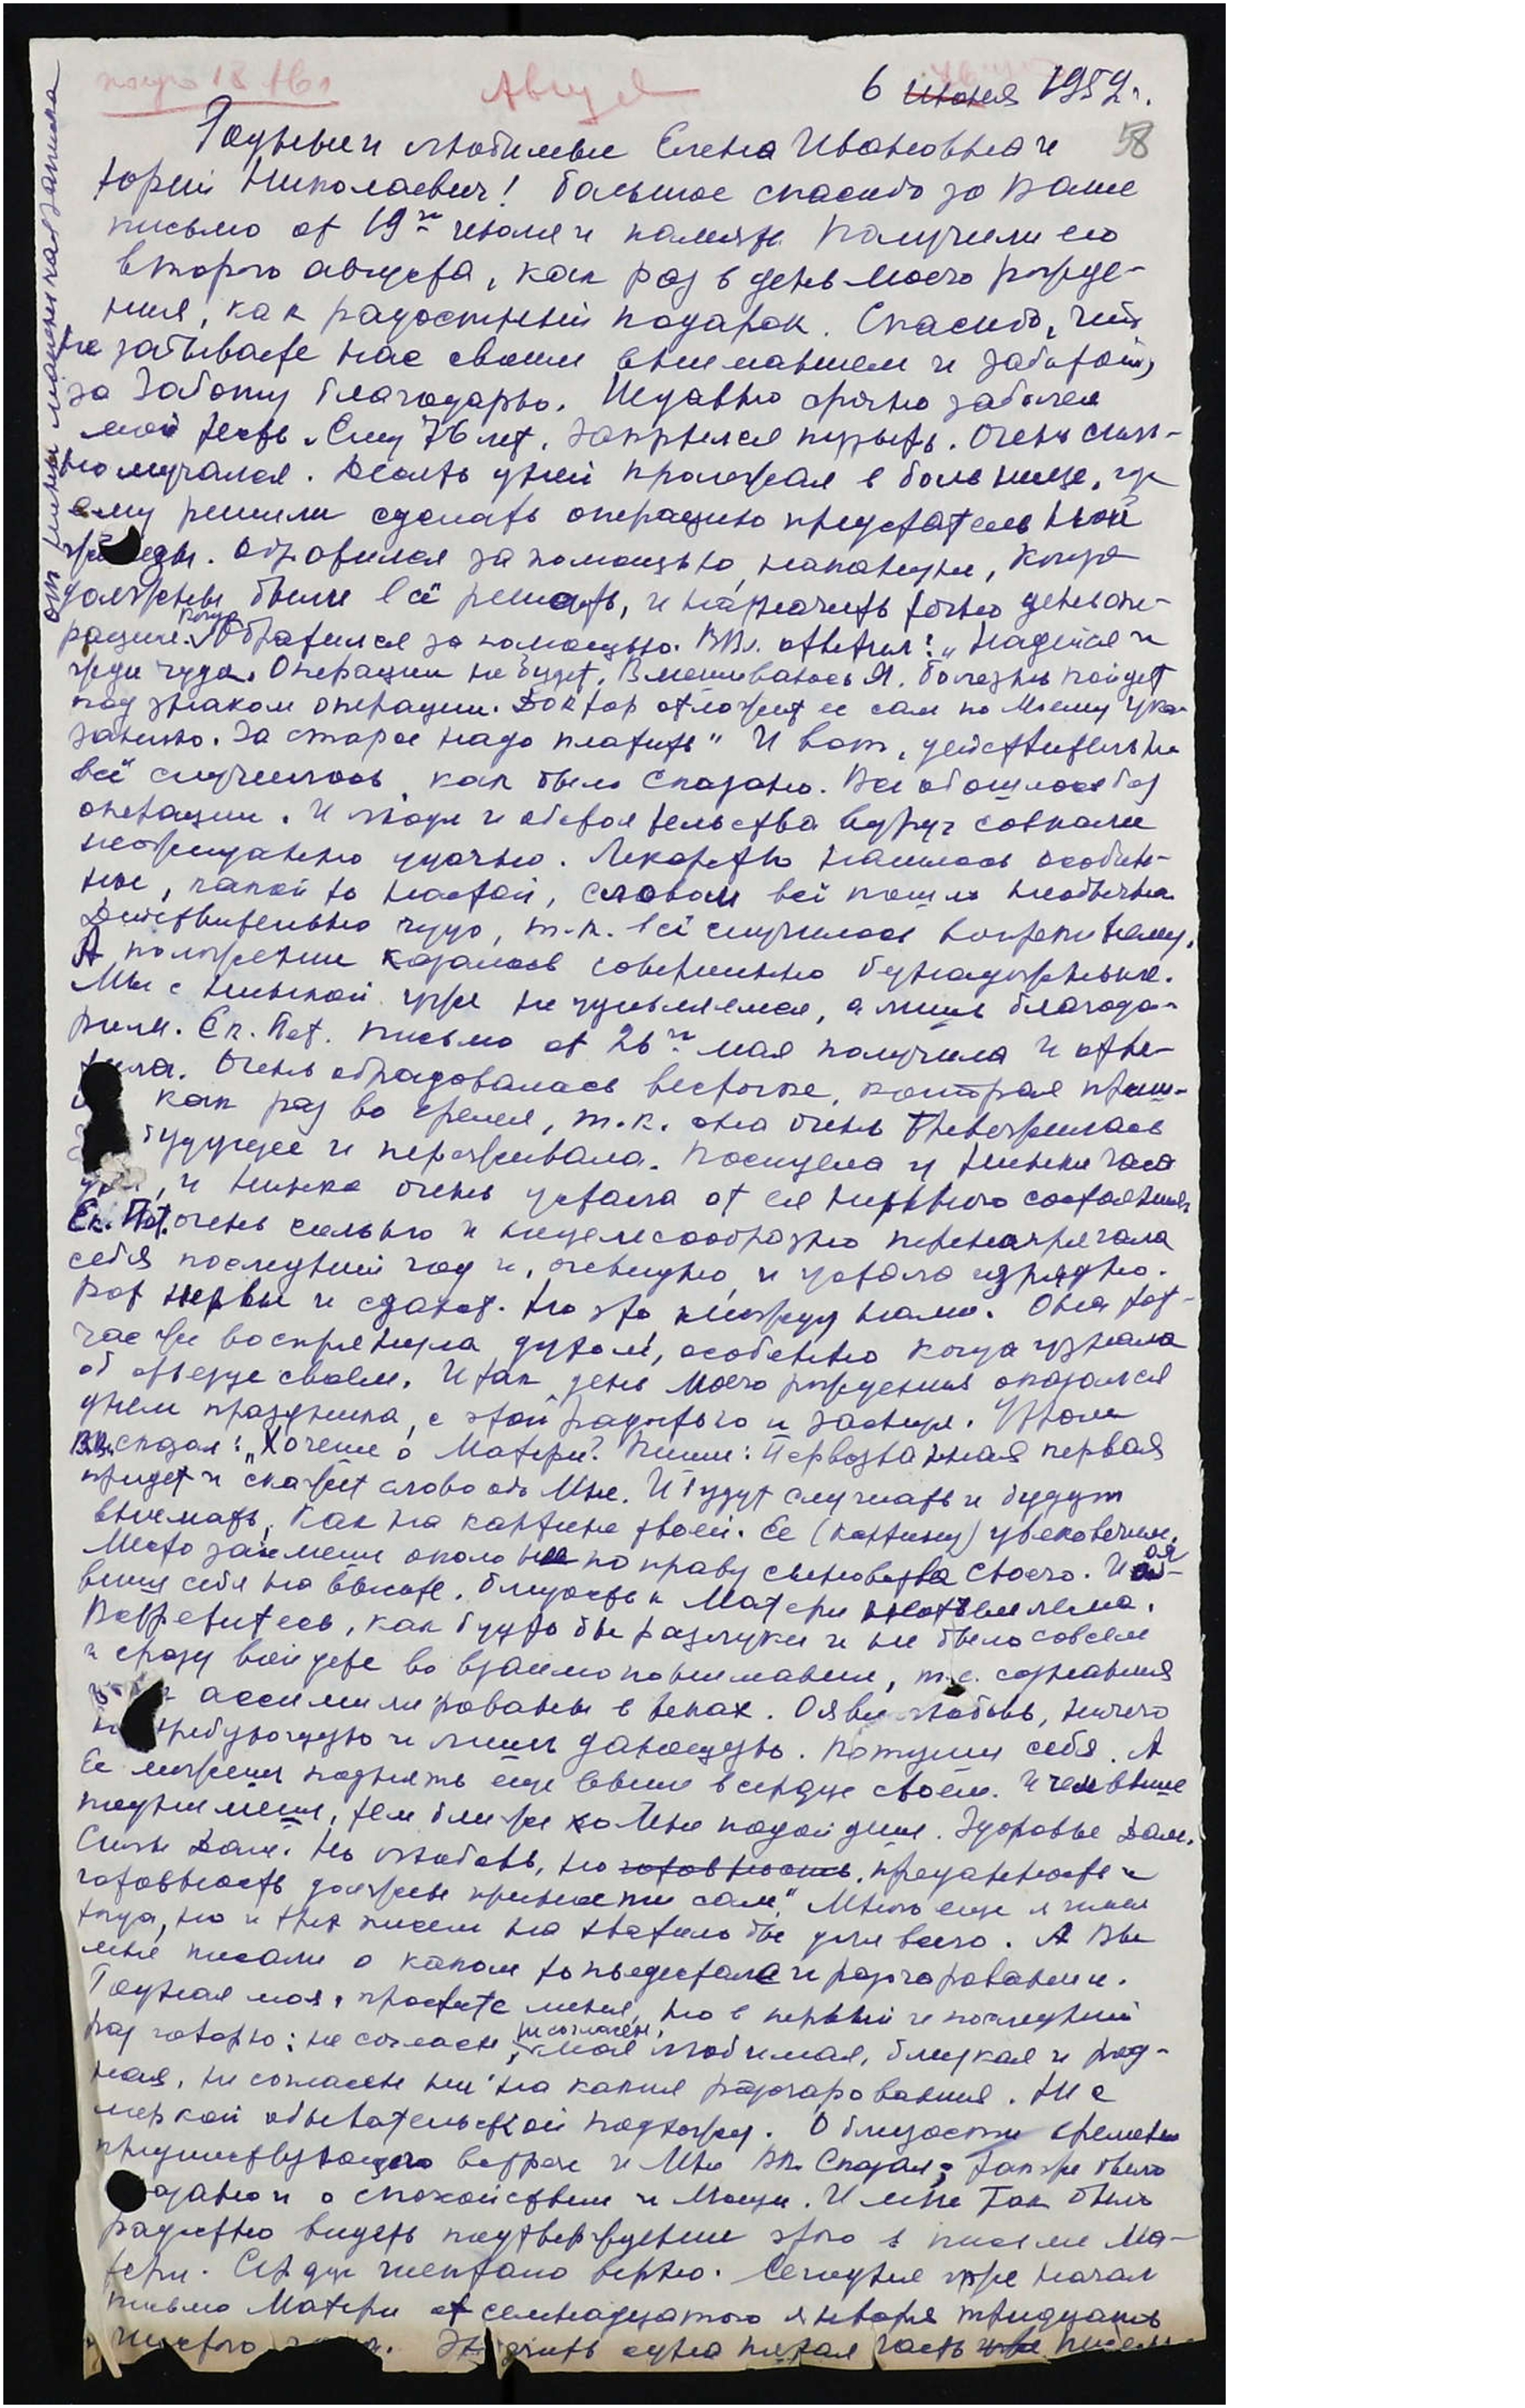 получ 18 Авг
Август
6 июня 1952 г.
58
Родные и любимые Елена Ивановна и
Юрий Николаевич! Большое спасибо за Ваше
письмо от 19го июля и память. Получили его
второго августа, как раз в день моего рожде-
ния, как радостный подарок. Спасибо, что
не забываете нас своим вниманием и заботой,
за заботу благодарю. Недавно срочно заболел
мой тесть. Ему 76 лет. Закрылся пузырь. Очень силь-
но мучался. Десять дней пролежал в больнице, где
ему решили сделать операцию предстательной
железы. Обратился за помощью, накануне, когда
должны были всё решать, и назначить точно день опе-
рации. Когда обратился за помощью. ВВл. ответил: „Надейся и
жди чуда. Операции не будет. Вмешиваюсь Я. Болезнь пойдет
под знаком операции. Доктор отложит ее сам по Моему ука-
занию. За старое надо платить" И вот, действительно
всё случилось, как было Сказано. Все обошлось без
операции. И люди и обстоятельства вдруг совпали
неожиданно удачно. Лекарство нашлось особен-
ное, какой то настой, словом всё пошло необычно.
Действительно чудо, т.к. всё случилось вопреки всему.
А положение казалось совершенно безнадежным.
Мы с Нинкой уже не удивляемся, а лишь благода-
рим. Ек. Пет. письмо от 26го мая получила и отве-
тила. Очень обрадовалась весточке, которая приш-
ла как раз во время, т.к. она очень тревожилась
за будущее и переживала. Посидела у Нинки часа
два, и Нинка очень устала от ея нервного состояния.
Ек. Пет. очень сильно и нецелесообразно перенапрягала
себя последний год и, очевидно, и устала изрядно.
Вот нервы и сдают. Но это между нами. Она тот-
час же воспрянула духом, особенно когда узнала
об отъезде своем. Итак день моего рождения оказался
днем праздника, с этой радостью и заснул. Утром
ВВл. сказал: „Хочешь о Матери? Пиши: Первозванная первая
придет и скажет слово обо Мне. И будут слушать и будут
внимать, как на картине твоей. Ее (картину) увековечим.
Место займешь около нее по праву сыновства своего. И ояв-
вишь себя на высоте. Близость к Матери неотъемлема.
Встретитесь, как будто бы разлуки и не было совсем
и сразу войдете во взаимопонимание, т.к. сознания
ваши ассимилированы в веках. Ояви любовь, ничего
не требующую и лишь дающую. Потуши себя. А
Ее можешь поднять еще выше в сердце своём. И чем выше
поднимешь, тем ближе ко Мне подойдешь. Здоровье Дам.
Силы Дам. Но любовь, но готовность, преданность и
готовность должен принести сам." Много еще я писал
тогда, но и трех писем не хватило бы для всего. А Вы
мне писали о каком то пьедестале и разочаровании.
Родная моя, простите меня, но в первый и последний
раз говорю: не согласен, не согласен, моя любимая, близкая и род-
ная, не согласен ни на какие разочарования. Не с
меркой обывательской подхожу. О близости времени
предшествующего встрече и Мне ВВл. Сказал; также было
сказано и о спокойствии и Мощи. И мне так было
радостно видеть подтверждение этого в письме Ма-
тери. Сердце шептало верно. Сегодня уже начал
письмо Матери от семнадцатого января тридцать
шестого года. Значит одна пятая часть уже писем
от Нины маленькая записка